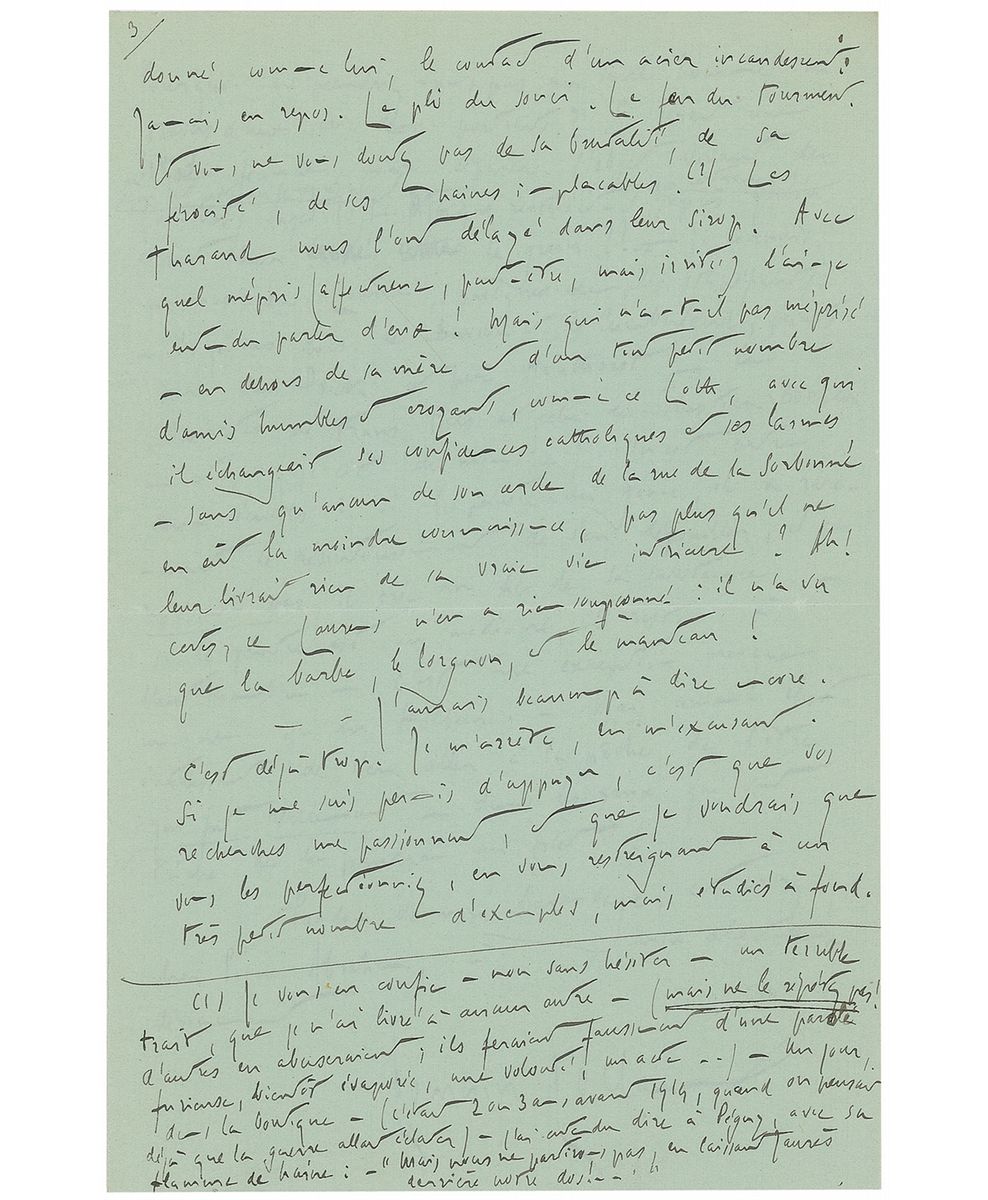 3
donné, comme lui, le contact d'un acier incandescent !
Jamais en repos. Le pli du souci. Le feu du tourment.
Et vous ne vous doutez pas de sa brutalité, de sa
férocité, de ses haines implacables ! (1) Les
Tharaud nous l'ont délayé dans leur sirop. Avec
quel mépris (affectueux, peut-être, mais irrité) l'ai-je
entendu parler d'eux ! Mais qui n'a-t-il pas méprisé
– en dehors de sa mère et d'un tout petit nombre
d'amis humbles et croyants, comme ce Lotte, avec qui
il échangeait ses confidences catholiques et ses larmes,
– sans qu'aucun de son cercle de la rue de la Sorbonne
en eût la moindre connaissance, pas plus qu'il ne
leur livrait rien de sa vraie vie intérieure ? Ah !
certes, ce Laurens n'en a rien soupçonné : il n'a vu
que la barbe, le lorgnon, et le manteau !
– – J'aurais beaucoup à dire encore.
C'est déjà trop. Je m'arrête, en m'excusant.
Si je me suis permis d'appuyer, c'est que vos
recherches me passionnent, et que je voudrais que
vous les perfectionniez, en vous restreignant à un
très petit nombre d'exemples, mais étudiés à fond.
(1) Je vous en confie – non sans hésiter – un terrible
trait, que je n'ai livré à aucun autre – (mais ne le répétez pas !
d'autres en abuseraient ; ils feraient faussement d'une parole
furieuse, bientôt évaporée, une volonté, un acte...) – Un jour,
dans la boutique – (c'était 2 ou 3 ans avant 1914, quand on pensait
déjà que la guerre allait éclater) – j'ai entendu dire à Péguy, avec sa
flamme de haine : – "Mais nous ne partirons pas, en laissant Jaurès
derrière notre dos !.. – "